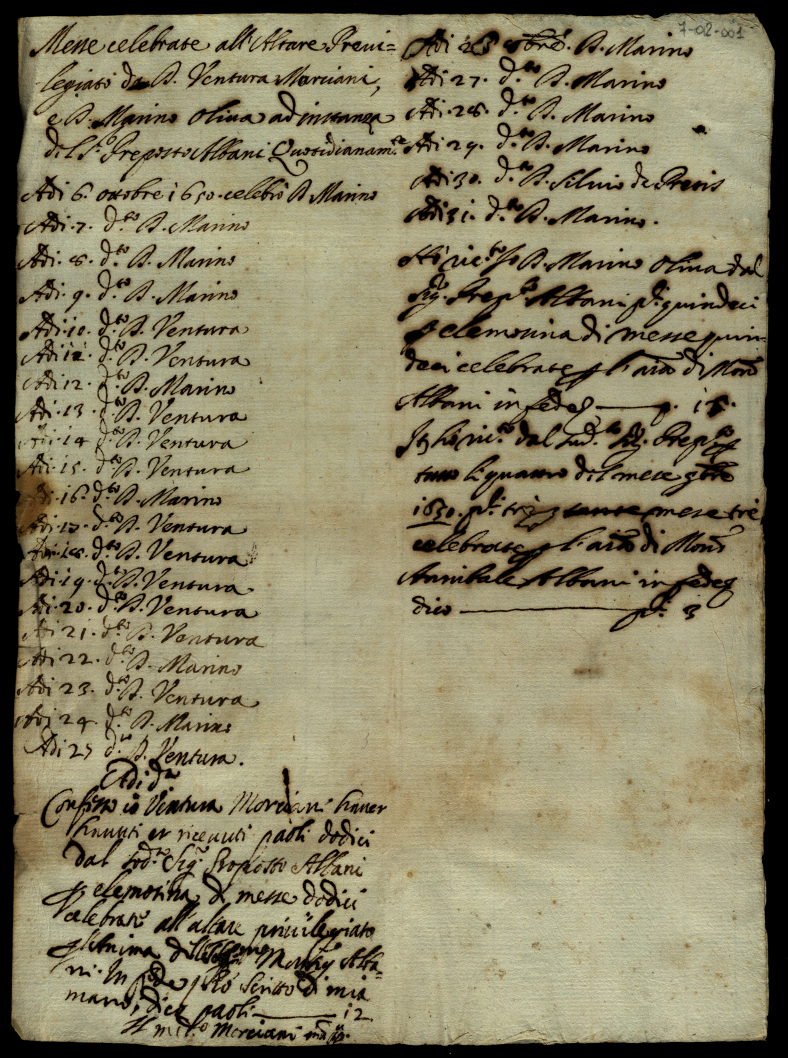 7-02-001
Messe celebrate all'Altare Previ=
legiato da D. Ventura Morciani,
e D. Marino Oliva ad instanza
del S.r Preposto Albani Quotidianam.te
Adi 6. ottobre 1650. celebrò D. Marino
Adi. 7. d.to D. Marino
Adi. 8. d.to D. Marino
Adi. 9. d.to D. Marino
Adi. 10. d.to D. Ventura
Adi 11. d.to D. Ventura
Adi 12. d.to D. Marino
Adi. 13. d.to D. Ventura
Adi. 14 d.to D. Ventura
Adi. 15. d.to D. Ventura
Adi. 16. d.to D. Marino
Adi. 17. d.to D. Ventura
Adi. 18. d.to D. Ventura
Adi. 19. d.to D. Ventura
Adi. 20. d.to D. Ventura
Adi 21. d.to D. Ventura
Adi 22. d.to D. Marino
Adi 23. d.to D. Ventura
Adi 24. d.to D. Marino
Adi 25 d.to D. Ventura.
Adi d.o
Confesso io Ventura Morciani haver
havuti et ricevuti paoli dodici
dal sod.to Sig.r Proposto Albani
p elemosina di messe dodici
celebrate all'altare privilegiato
p l'Anima di Mons.r Alba=
ni. In fede p hò scritto di mia
mano, dico paoli — 12
Morciani mp.
Adi 26 8bre. D. Marino
Adi 27. d.to D. Marino
Adi. 28. d.to D. Marino
Adi. 29. d.to D. Marino
Adi 30. d.to D. Silvio de
Adi 31. d.to D. Marino.
Hò ric.to Io D. Marino Oliva dal
Sig.r Prep.to Albani p.li quindeci
p elemosina di messe quin=
deci celebrate p l'aīa di Mons.r
Albani in fede — p. 15.
It. hò ric.to dal sud.to Sig. Prep.to
tutto li quattro del mese 9bre
1650. p.li trè messe trè
celebrate p l'aīa di Mons.r
Annibale Albani in fede
dico — p.li 3